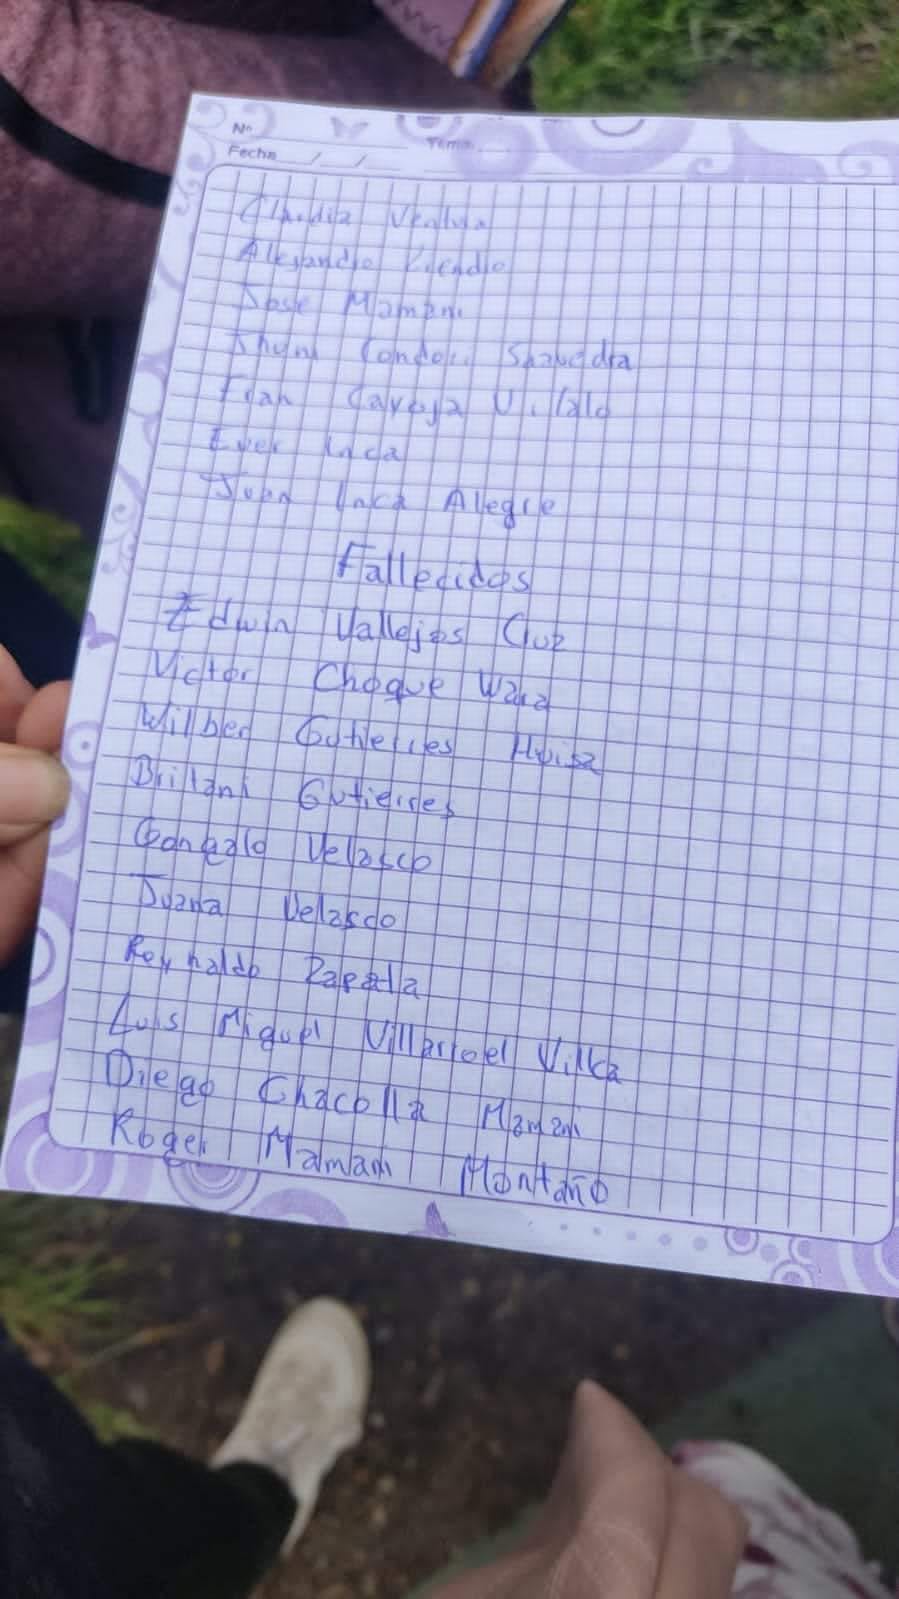 Nº
Tema
Fecha / /
Claudia Ventura
Alejandro
Jose Mamani
Jhyni Condori Saavedra
Fran Cavoja
Ever Inca
Juan Inca Alegre
Fallecidos
Edwin Vallejos Cruz
Victor Choque Wara
Wilber Gutierres Huisa
Brillani Gutierres
Gonzalo Velasco
Juana Velasco
Reynaldo Zapata
Luis Miguel Villarroel Vilka
Diego Chacolla Mamani
Roger Mamani Montaño